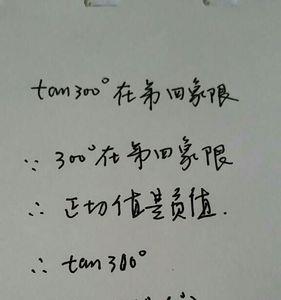 tan300°在第四象限
∵ 300°在第四象限
∴ 正切值是负值.
∴ tan300°